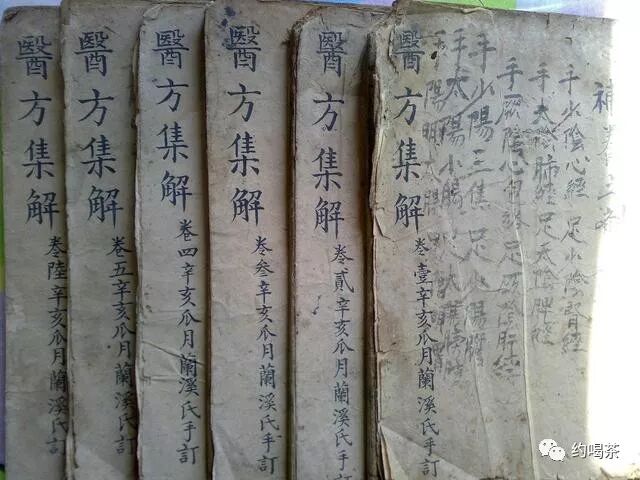 補養之
手少陰心經 足少陰腎經
手太陰肺經 足太陰脾經
手厥陰心包絡 足厥陰肝經
手少陽三焦 足少陽膽
手太陽小腸 太陽膀胱
陽明大腸
醫方集解
卷壹辛亥瓜月蘭溪氏手訂
醫方集解
卷貳辛亥瓜月蘭溪氏手訂
醫方集解
卷叁辛亥瓜月蘭溪氏手訂
醫方集解
卷四辛亥瓜月蘭溪氏手訂
醫方集解
卷五辛亥瓜月蘭溪氏手訂
醫方集解
卷陸辛亥瓜月蘭溪氏手訂
约喝茶